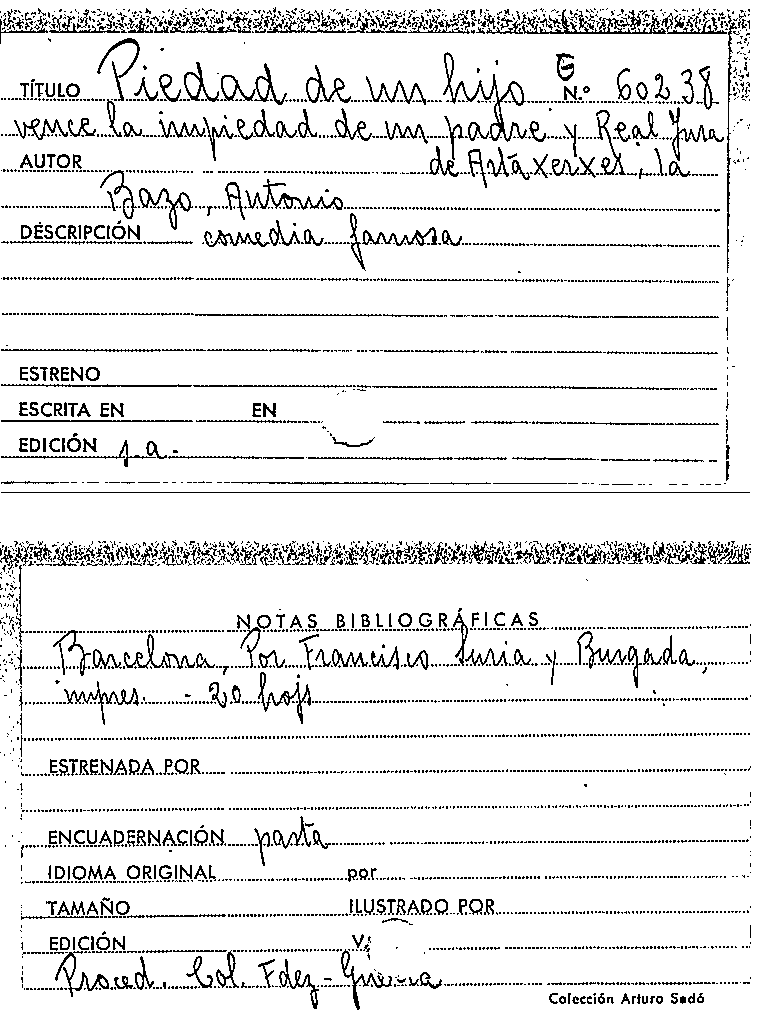 TÍTULO Piedad de un hijo N.º 60238
vence la impiedad de un padre y Real Jura
AUTOR de Artáxerxes, la
Bazo, Antonio
DESCRIPCIÓN comedia famosa
ESTRENO
ESCRITA EN EN
EDICIÓN s.a.
NOTAS BIBLIOGRÁFICAS
Barcelona, Por Francisco Suria y Burgada,
impres. - 20 hojs
ESTRENADA POR
ENCUADERNACIÓN pasta
IDIOMA ORIGINAL por
TAMAÑO ILUSTRADO POR
EDICIÓN
Proced. Col. Fdez-Guerra
Colección Arturo Sedó